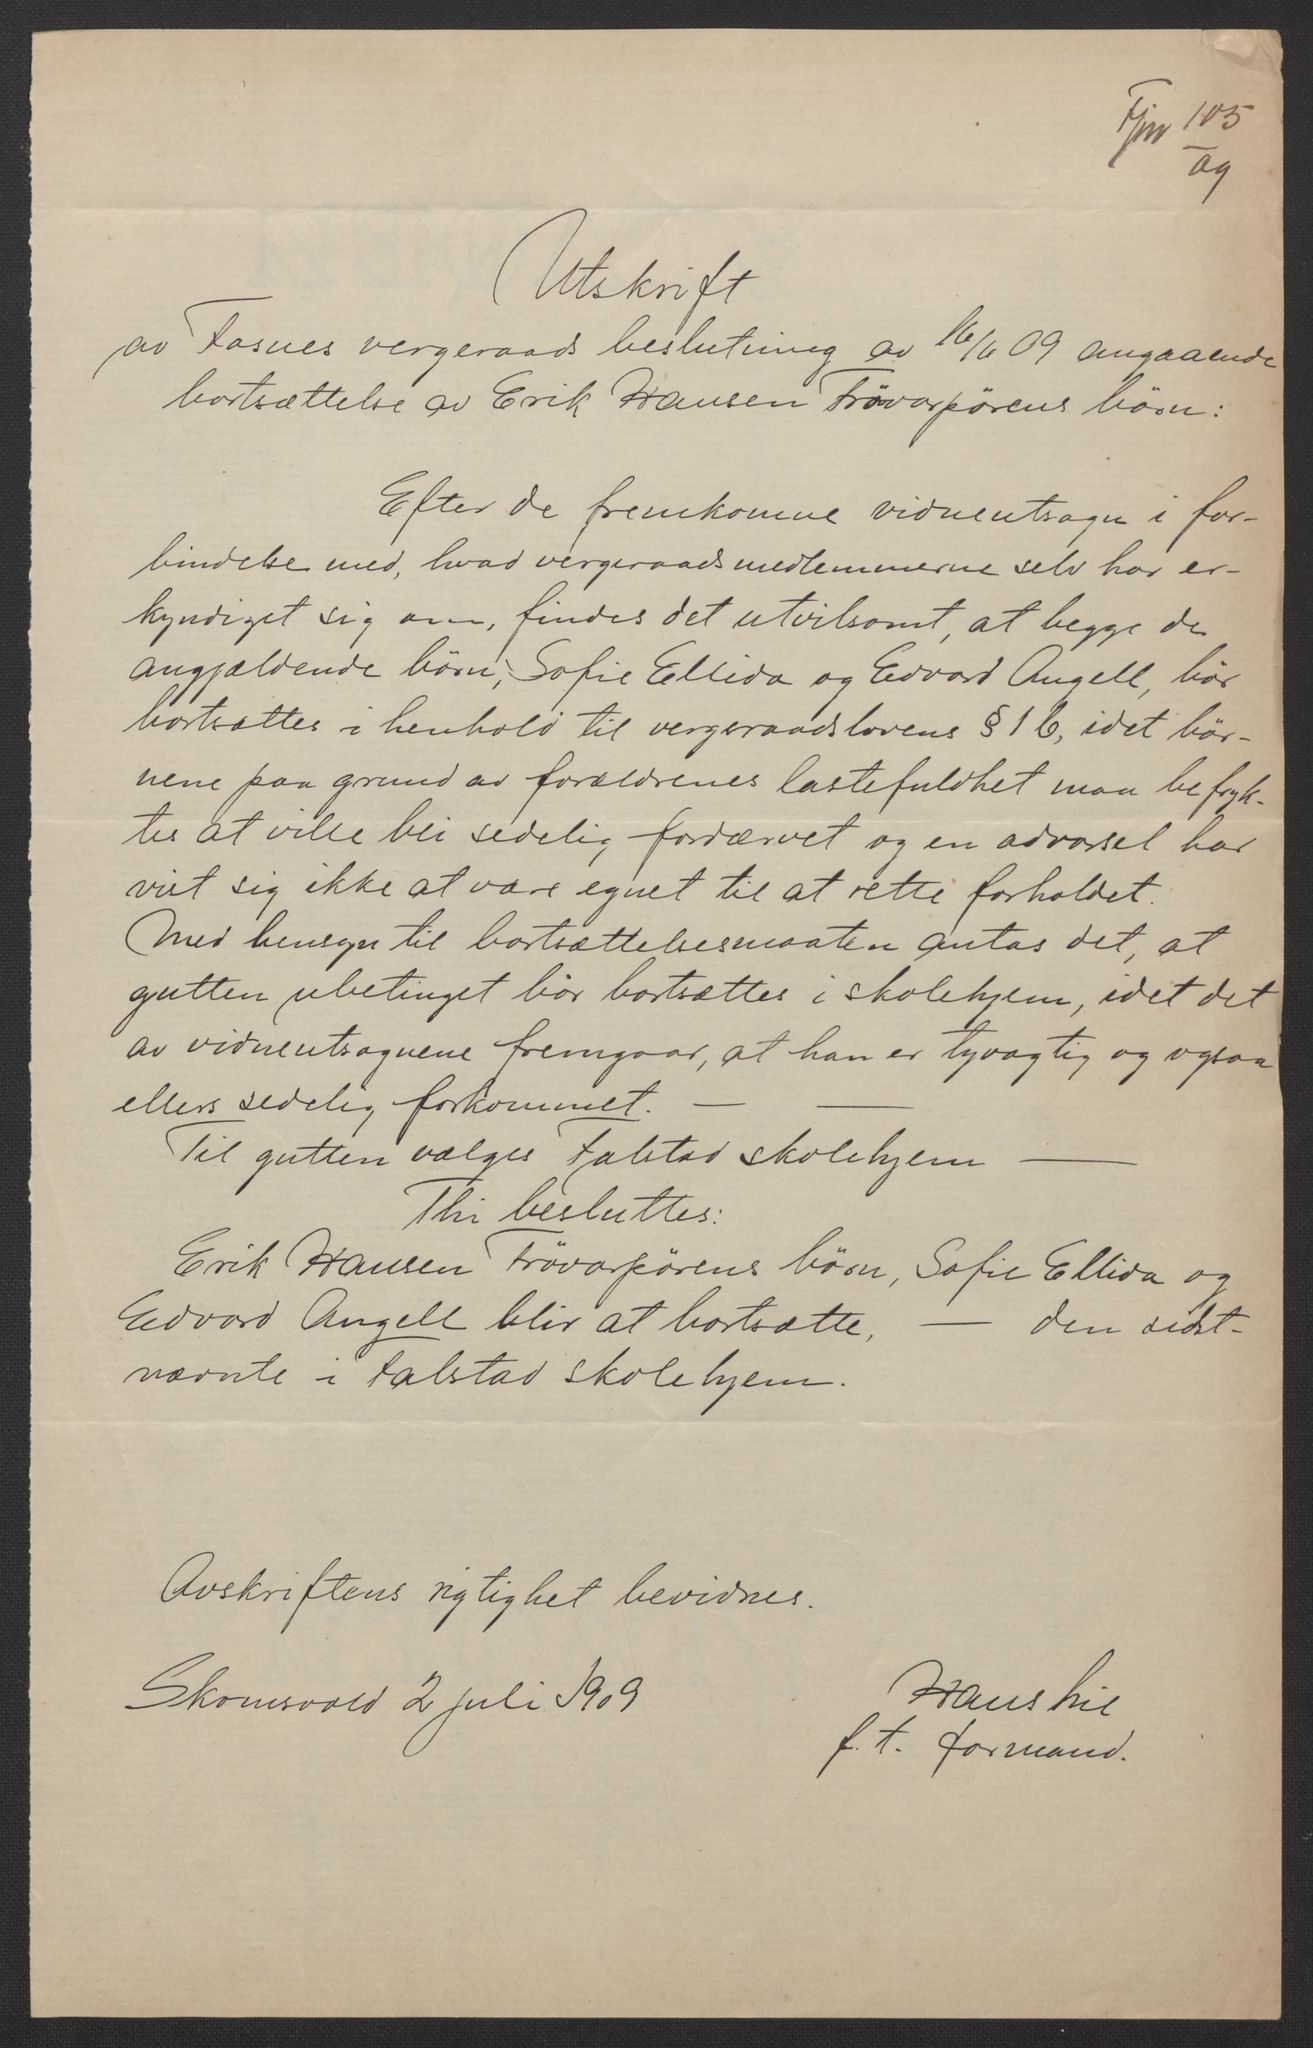 Fjnr 105
09
Utskrift
av Fosnes vergeraads beslutning av 16/6 09 angaaende
bortsættelse av Erik Hansen Frövarpörens börn:
Efter de fremkomne vidneutsagn i for-
bindelse med, hvad vergeraadsmedlemmerne selv har er-
kyndiget sig om, findes det utvilsomt, at begge de
angjældende börn, Sofie Ellida og Edvard Angell, bör
bortsættes i henhold til vergeraadslovens § 1 b, idet bör-
nene paa grund av forældrenes lastefuldhet maa befryk-
tes at ville bli sedelig fordærvet og en advarsel har
vist sig ikke at være egnet til at rette forholdet.
Med hensyn til bortsættelsesmaaten antas det, at
gutten ubetinget bör bortsættes i skolehjem, idet det
av vidneutsagnene fremgaar, at han er tyvagtig og ogsaa
ellers sedelig forkommet. — —
Til gutten vælges Falstad skolehjem —
Thi besluttes:
Erik Hansen Frövarpörens börn, Sofie Ellida og
Edvard Angell blir at bortsætte, — den sidst-
nævnte i Falstad skolehjem.
Avskriftens rigtighet bevidnes.
Skomsvold 2 juli 1909
Hans
f. t. formand.